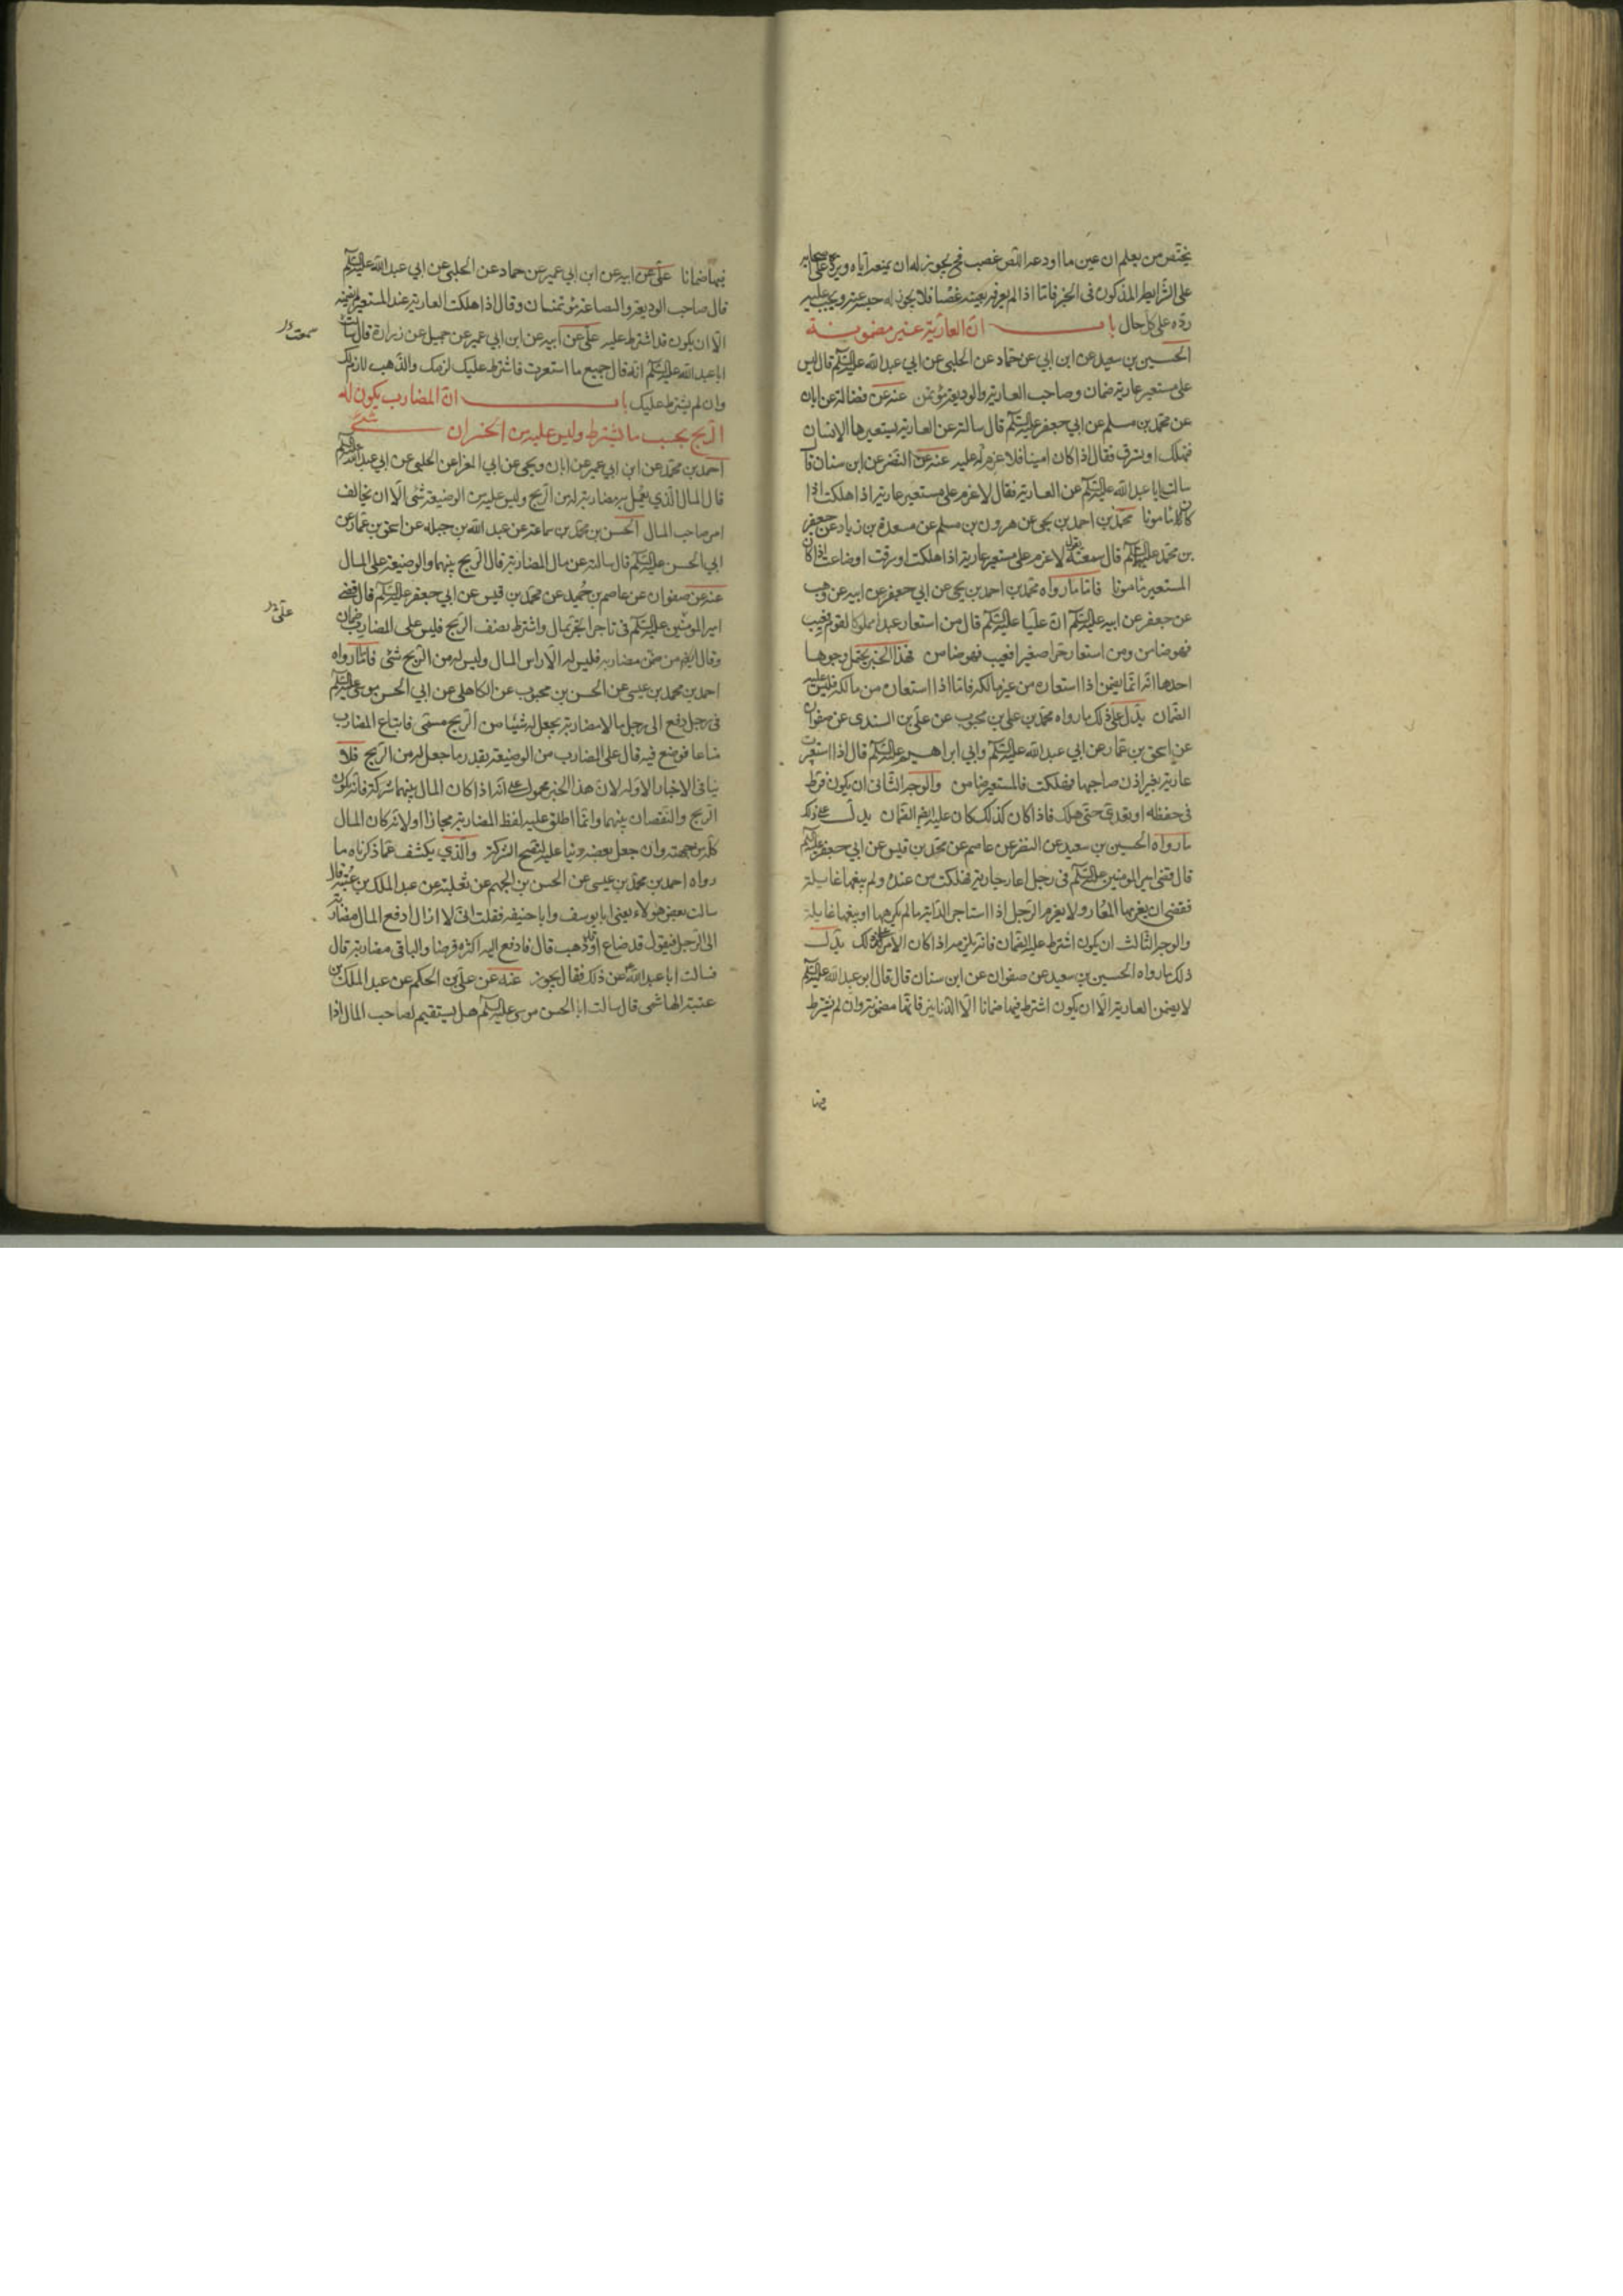 يختص من يعلم ان عين ما اودعه اللص غصب فح يجوز له ان يمنعه اياه ويرد على صاحبه
على الشرايط المذكورة في الخبر فاما اذا لم يعرفه بعينه غصبا فلا يجوز له حبسه عنه ويجب عليه
رده على كل حال باب ان العارية غير مضمونة
الحسين بن سعيد عن ابن ابي عن حماد عن الحلبي عن ابي عبد الله عليه السلام قال ليس
على مستعير عارية ضمان وصاحب العارية والوديعة مؤتمن عنه عن فضالة عن ابان
عن محمد بن مسلم عن ابي جعفر عليه السلام قال سالته عن العارية يستعيرها الانسان
فتهلك او تسرق فقال اذا كان امينا فلا غرم عليه عنه عن النضر عن ابن سنان قا
سالت ابا عبد الله عليه السلام عن العارية فقال لا غرم على مستعير عارية اذا هلكت اذا
كان مامونا محمد بن احمد بن يحيى عن هرون بن مسلم عن مسعدة بن زياد عن جعفر
بن محمد عليه السلام قال سمعته يقول لا غرم على مستعير عارية اذا هلكت او سرقت او ضاعت اذا كان
المستعير مامونا فاما ما رواه محمد بن احمد بن يحيى عن ابي جعفر عن ابيه عن وهب
عن جعفر عن ابيه عليه السلام ان عليا عليه السلام قال من استعار عبدا مملوكا لقوم فعيب
فهو ضامن ومن استعار حرا صغيرا فعيب فهو ضامن فهذا الخبر يحتمل وجوها
احدها انه انما يضمن اذا استعاره من غير مالكه فاما اذا استعاره من مالكه فليس عليه
الضمان يدل على ذلك ما رواه محمد بن علي بن محبوب عن علي بن السندي عن صفوان
عن اسحق بن عمار عن ابي عبد الله عليه السلام وابي ابراهيم عليه السلام قال اذا استعيرت
عارية بغير اذن صاحبها فهلكت فالمستعير ضامن والوجه الثاني ان يكون فرط
في حفظه او تعدى حتى هلك فاذا كان كذلك كان عليه ايضا الضمان يدل على ذلك
ما رواه الحسين بن سعيد عن النضر عن عاصم عن محمد بن قيس عن ابي جعفر عليه السلام
قال قضى امير المومنين عليه السلام في رجل اعار جارية فهلكت من عنده ولم يبغها غايلة
فقضى ان يغرمها المعار ولا يغرم الرجل اذا استاجر الدابة ما لم يكرهها او يبغها غايلة
والوجه الثالث ان يكون اشترط عليه الضمان فانه يلزمه اذا كان الامر كذلك يدل
ذلك ما رواه الحسين بن سعيد عن صفوان عن ابن سنان قال قال ابو عبد الله عليه السلام
لا يضمن العارية الا ان يكون اشترط فيها ضمانا الا الدنانير فانها مضمونة وان لم يشترط
فيها
فيها ضمانا علي عن ابيه عن ابن ابي عمير عن حماد عن الحلبي عن ابي عبد الله عليه السلام
قال صاحب الوديعة والبضاعة مؤتمنان وقال اذا هلكت العارية عند المستعير لم يضمنه
الا ان يكون قد اشترط عليه علي عن ابيه عن ابن ابي عمير عن جميل عن زرارة قال سالت
سمعت
ابا عبد الله عليه السلام انه قال جميع ما استعرت فاشترط عليك لزمك والذهب لازم لك
وان لم يشترط عليك باب ان المضارب يكون له
الربح بحسب ما يشترط وليس عليه من الخسران شئ
احمد بن محمد عن ابن ابي عمير عن ابان ويحيى عن ابي المعزا عن الحلبي عن ابي عبد الله عليه السلام
قال المال الذي يعمل به مضاربة له من الربح وليس عليه من الوضيعة شئ الا ان يخالف
امر صاحب المال الحسن بن محمد بن سماعة عن عبد الله بن جبلة عن اسحق بن عمار عن
ابي الحسن عليه السلام قال سالته عن مال المضاربة قال الربح بينهما والوضيعة على المال
عنه عن صفوان عن عاصم بن حميد عن محمد بن قيس عن ابي جعفر عليه السلام قال قضى
علي
امير المومنين عليه السلام في تاجر اتجر بمال واشترط نصف الربح فليس على المضارب ضمان
وقال ايضا من ضمن مضاربه فليس له الا راس المال وليس له من الربح شئ فاما ما رواه
احمد بن محمد بن عيسى عن الحسن بن محبوب عن الكاهلي عن ابي الحسن موسى عليه السلام
في رجل دفع الى رجل مالا مضاربة يجعل له شيئا من الربح مسمى فابتاع المضارب
متاعا فوضع فيه قال على المضارب من الوضيعة بقدر ما جعل له من الربح فلا
ينافي الاخبار الاوله لان هذا الخبر محمول على انه اذا كان المال بينهما شركة فانه يكون
الربح والنقصان بينهما وانما اطلق عليه لفظ المضاربة مجازا اولانه كان المال
كله من جهته وان جعل بعضه دينا عليه لتصح الشركة والذي يكشف عما ذكرناه ما
رواه احمد بن محمد بن عيسى عن الحسن بن الجهم عن ثعلبة عن عبد الملك بن عتبة قال
سالت بعض هولاء يعني ابا يوسف وابا حنيفه فقلت اني لا ازال ادفع المال مضاربة
الى الرجل فيقول قد ضاع او قد ذهب قال فادفع اليه اكثره قرضا والباقي مضاربة قال
فسالت ابا عبد الله عن ذلك فقال يجوز عنه عن علي بن الحكم عن عبد الملك بن
عتبة الهاشمي قال سالت ابا الحسن موسى عليه السلام هل يستقيم لصاحب المال اذا